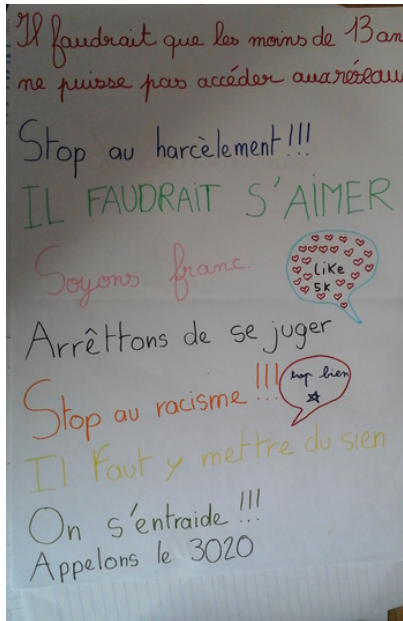 Il faudrait que les moins de 13 an
ne puisse pas accéder aux réseau
Stop au harcèlement !!!
IL FAUDRAIT S'AIMER
Soyons franc.
Like
5k
Arrêttons de se juger
Stop au racisme !!!
trop bien
Il Faut y mettre du sien
On s'entraide !!!
Appelons le 3020